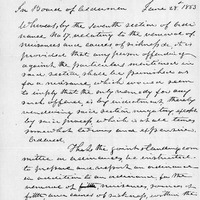 In Board of Aldermen June 28 1853
Whereas, by the seventh section of Ordi
nance No 17, relating to the removal of
nuisances and causes of sickness, it is
provided that any person offending
against the particulars mentioned in
said section shall be punished as
for a nuisance, which would seem
to imply that the only remedy for any
such offence, is by indictment, thereby
rendering said section nugatory except
by such process which is at all times
somewhat tedious and expensive,
Ordered,
That the joint standing com
mittee on ordinances be instructed
to prepare and report an ordinance
in addition to an ordinance for the
removal of nuisances, sources of
filth and causes of sickness, within the